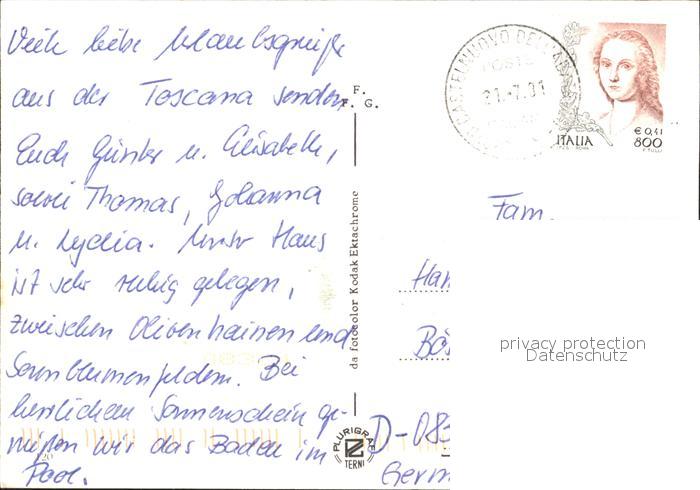 Viele liebe Urlaubsgrüße
aus der Toscana senden
Euch Günter u. Elisabeth,
sowie Thomas, Johanna
u. Lydia. Unser Haus
ist sehr ruhig gelegen,
zwischen Olivenhainen und
Sonnblumenfeldern. Bei
herrlichem Sonnenschein ge-
nießen wir das Baden im
Pool.
F.
F. G.
da fotocolor Kodak Ektachrome
PLURIGRAF
TERNI
CASTELNUOVO DELL'AB
POSTE
21.-7.01
€ 0,41
ITALIA 800
Fam.
Han
Bös
D-083
Germ
privacy protection
Datenschutz